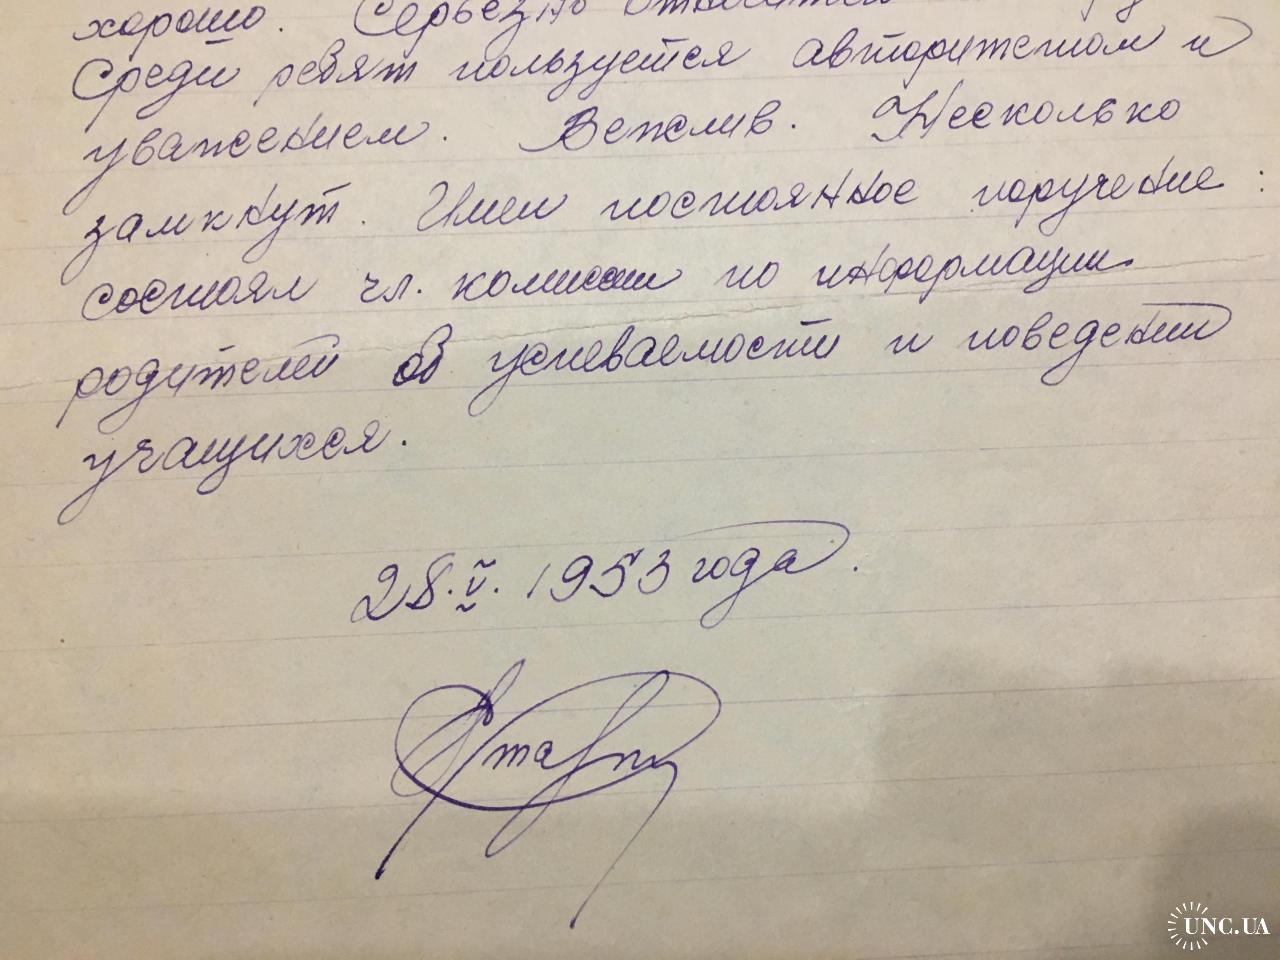 хорошо. Серьезно относится
Среди ребят пользуется авторитетом и
уважением. Вежлив. Несколько
замкнут. Имел постоянное поручение:
состоял чл. комиссии по информации
родителей об успеваемости и поведении
учащихся.
28.V. 1953 года.
UNC.UA